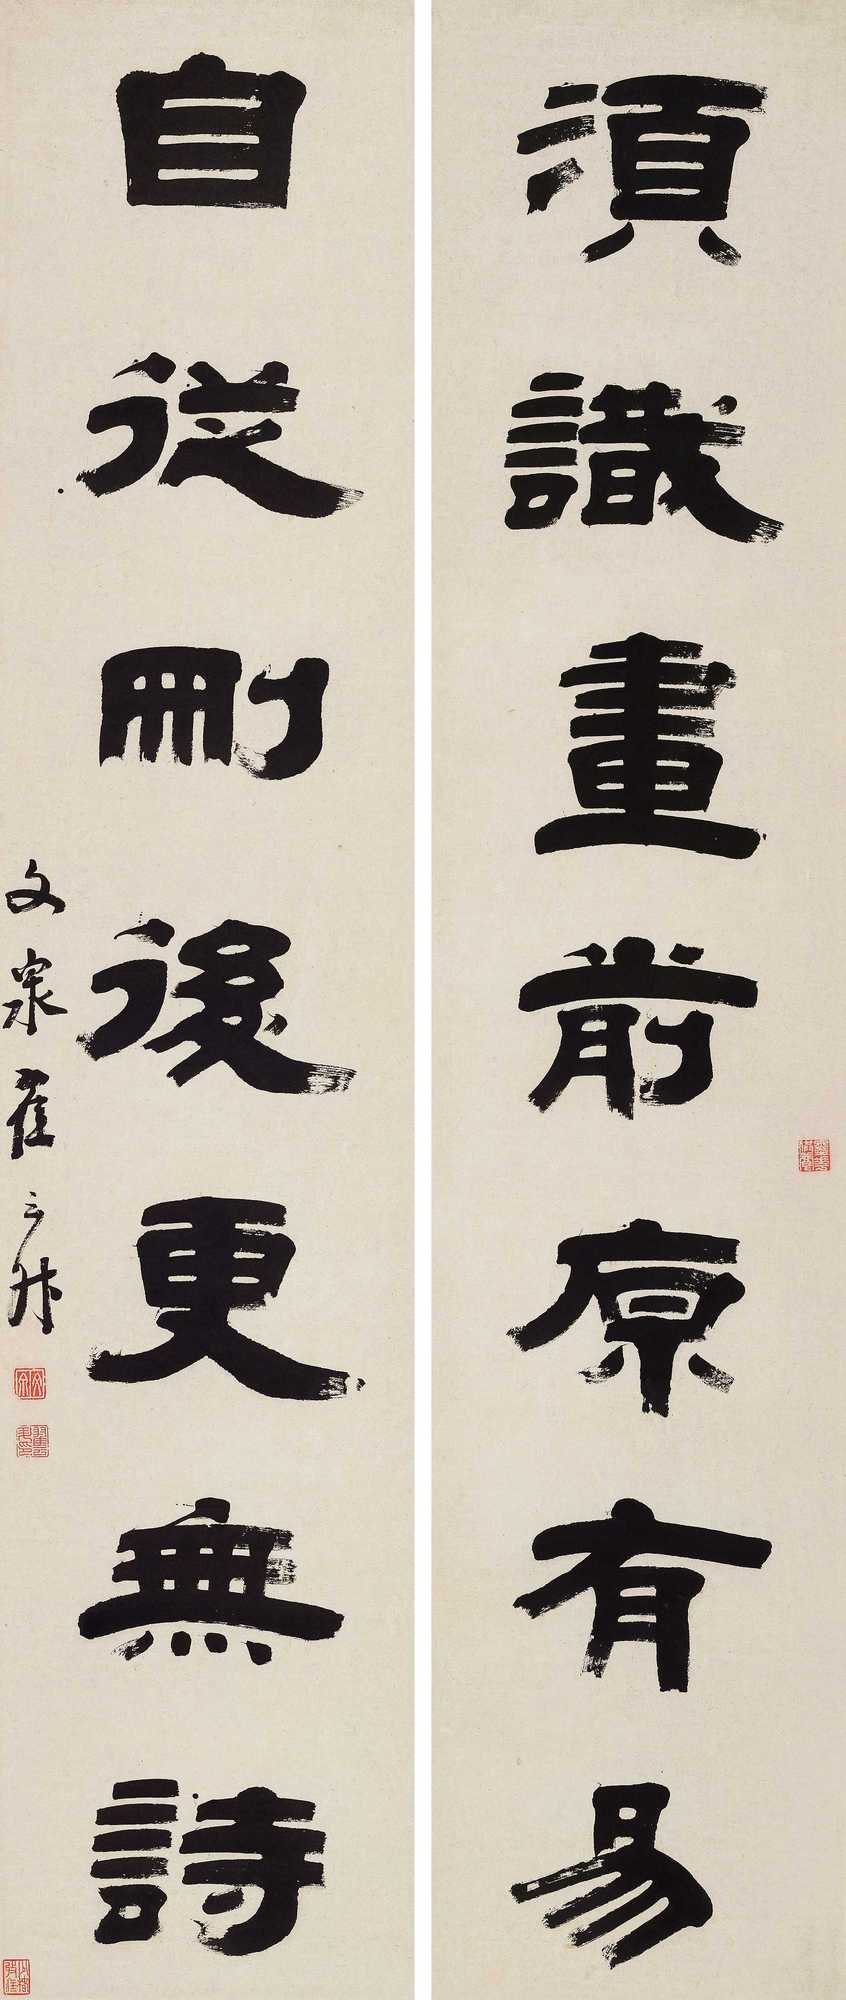 須識畫前原有易
自從刪後更無詩
文泉翟云升